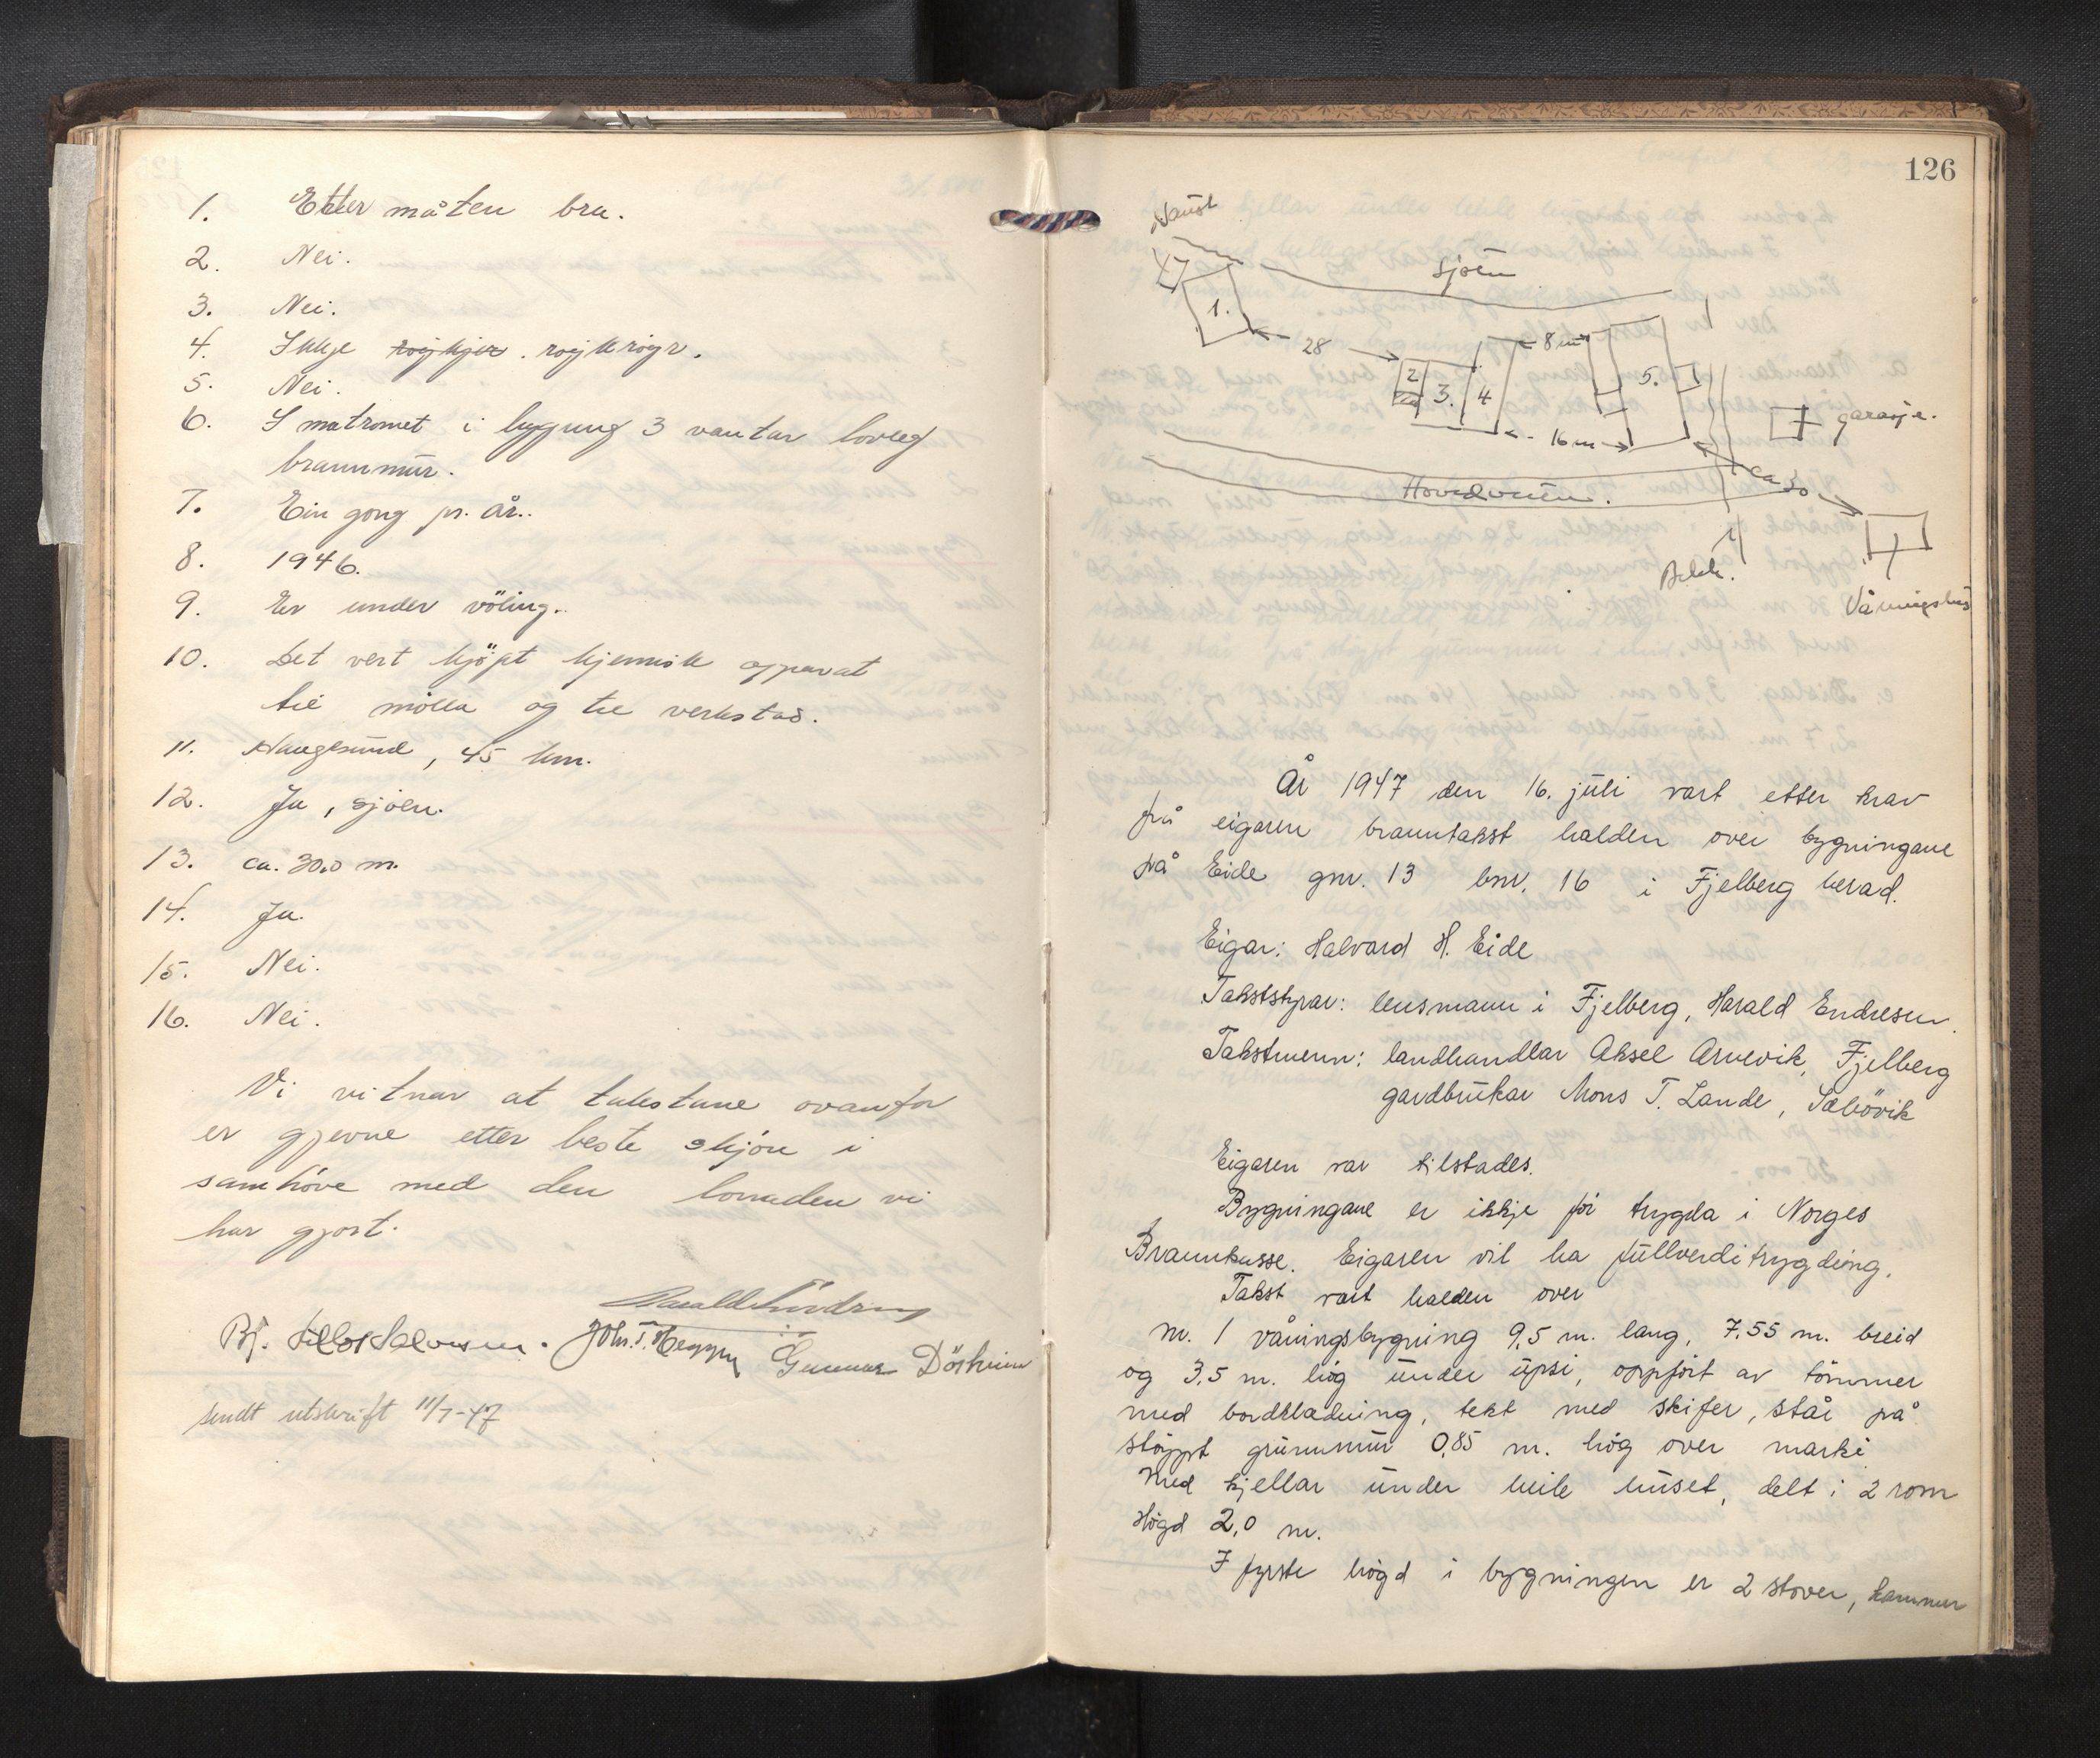 1. Etter måten bra.
2. Nei.
3. Nei.
4. Ikkje røykjer. røykrøyr.
5. Nei.
6. I matromet i bygning 3 vantar loveg
brannmur.
7. Ein gong pr. år..
8. 1946.
9. Er under völing..
10. Det vert kjöpt kjemisk apparat
til mölla og til verkstad.
11. Haugesund, 45 km.
12. Ja, sjöen.
13. ca. 30,0 m.
14. Ja.
15. Nei.
16. Nei.
Vi vitnar at takstane ovanfor
er gjevne etter beste skjön i
samhöve med den lovnaden vi
har gjort.
Harald Endresen
Bj. Halvorsen. Joh. T. Heggen Gunnar Dösheim
sendt utskrift 11/7-47
126
Naust
Sjöen
1.
28
8 m
2
3.
4
5.
garasje.
16 m
ca 30
Hovedveien.
Bekk.
Våningshus
År 1947 den 16. juli vart etter krav
frå eigaren branntakst halden over bygningane
på Eide gnr. 13 bnr. 16 i Fjelberg herad.
Eigar: Halvard H. Eide
Takststyrar: lensmann i Fjelberg, Harald Endresen.
Takstmenn: landhandlar Aksel Arnevik, Fjelberg
gardbrukar Mons T. Lande, Sæbövik
Eigaren var tilstades.
Bygningane er ikkje för trygda i Norges
Brannkasse. Eigaren vil ha fullverditrygding.
Takst vart halden over
nr. 1 våningsbygning 9,5 m. lang, 7,55 m. breid
og 3,5 m. høg under upsi, oppfört av tömmer
med bordkledning, tekt med skifer, står på
stöypt grunnmur 0,85 m. høg over marki
Med kjellar under heile huset, delt i 2 rom
Högd 2,0 m.
I fyrste högd i bygningen er 2 stover, kammer